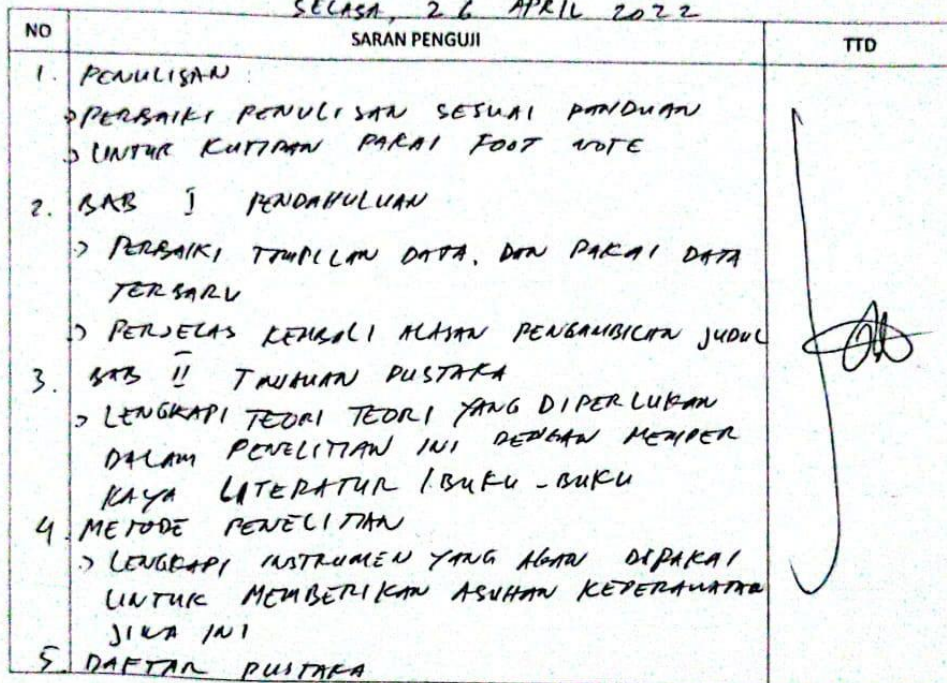 SELASA, 26 APRIL 2022
NO SARAN PENGUJI TTD
1. PENULISAN :
> PERBAIKI PENULISAN SESUAI PANDUAN
> UNTUK KUTIPAN PAKAI FOOT NOTE
2. BAB I PENDAHULUAN
> PERBAIKI TAMPILAN DATA. DAN PAKAI DATA
TERBARU
> PERJELAS KEMBALI ALASAN PENGAMBILAN JUDUL
3. BAB II TINJAUAN PUSTAKA
> LENGKAPI TEORI TEORI YANG DIPERLUKAN
DALAM PENELITIAN INI DENGAN MEMPER
KAYA LITERATUR / BUKU - BUKU
4. METODE PENELITIAN
> LENGKAPI INSTRUMEN YANG AKAN DIPAKAI
UNTUK MEMBERIKAN ASUHAN KEPERAWATAN
JIWA INI
5 DAFTAR PUSTAKA